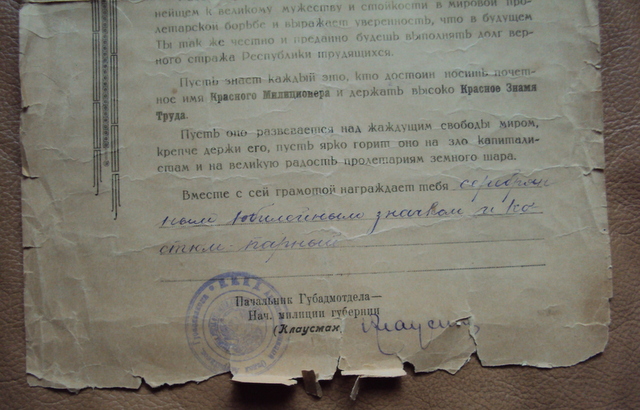 нейшем к великому мужеству и стойкости в мировой про-
летарской борьбе и выражает уверенность, что в будущем
Ты так же честно и преданно будешь выполнять долг вер-
ного стража Республики трудящихся.
Пусть знает каждый это, кто достоин носить почет-
ное имя Красного Милиционера и держать высоко Красное Знамя
Труда.
Пусть оно развевается над жаждущим свободы миром,
крепче держи его, пусть ярко горит оно на зло капитали-
стам и на великую радость пролетариям земного шара.
Вместе с сей грамотой награждает тебя серебрян
ным юбилейным значком и ко
стюм парный
Начальник Губадмотдела—
Нач. милиции губернии
(Клаусман
Клаусман